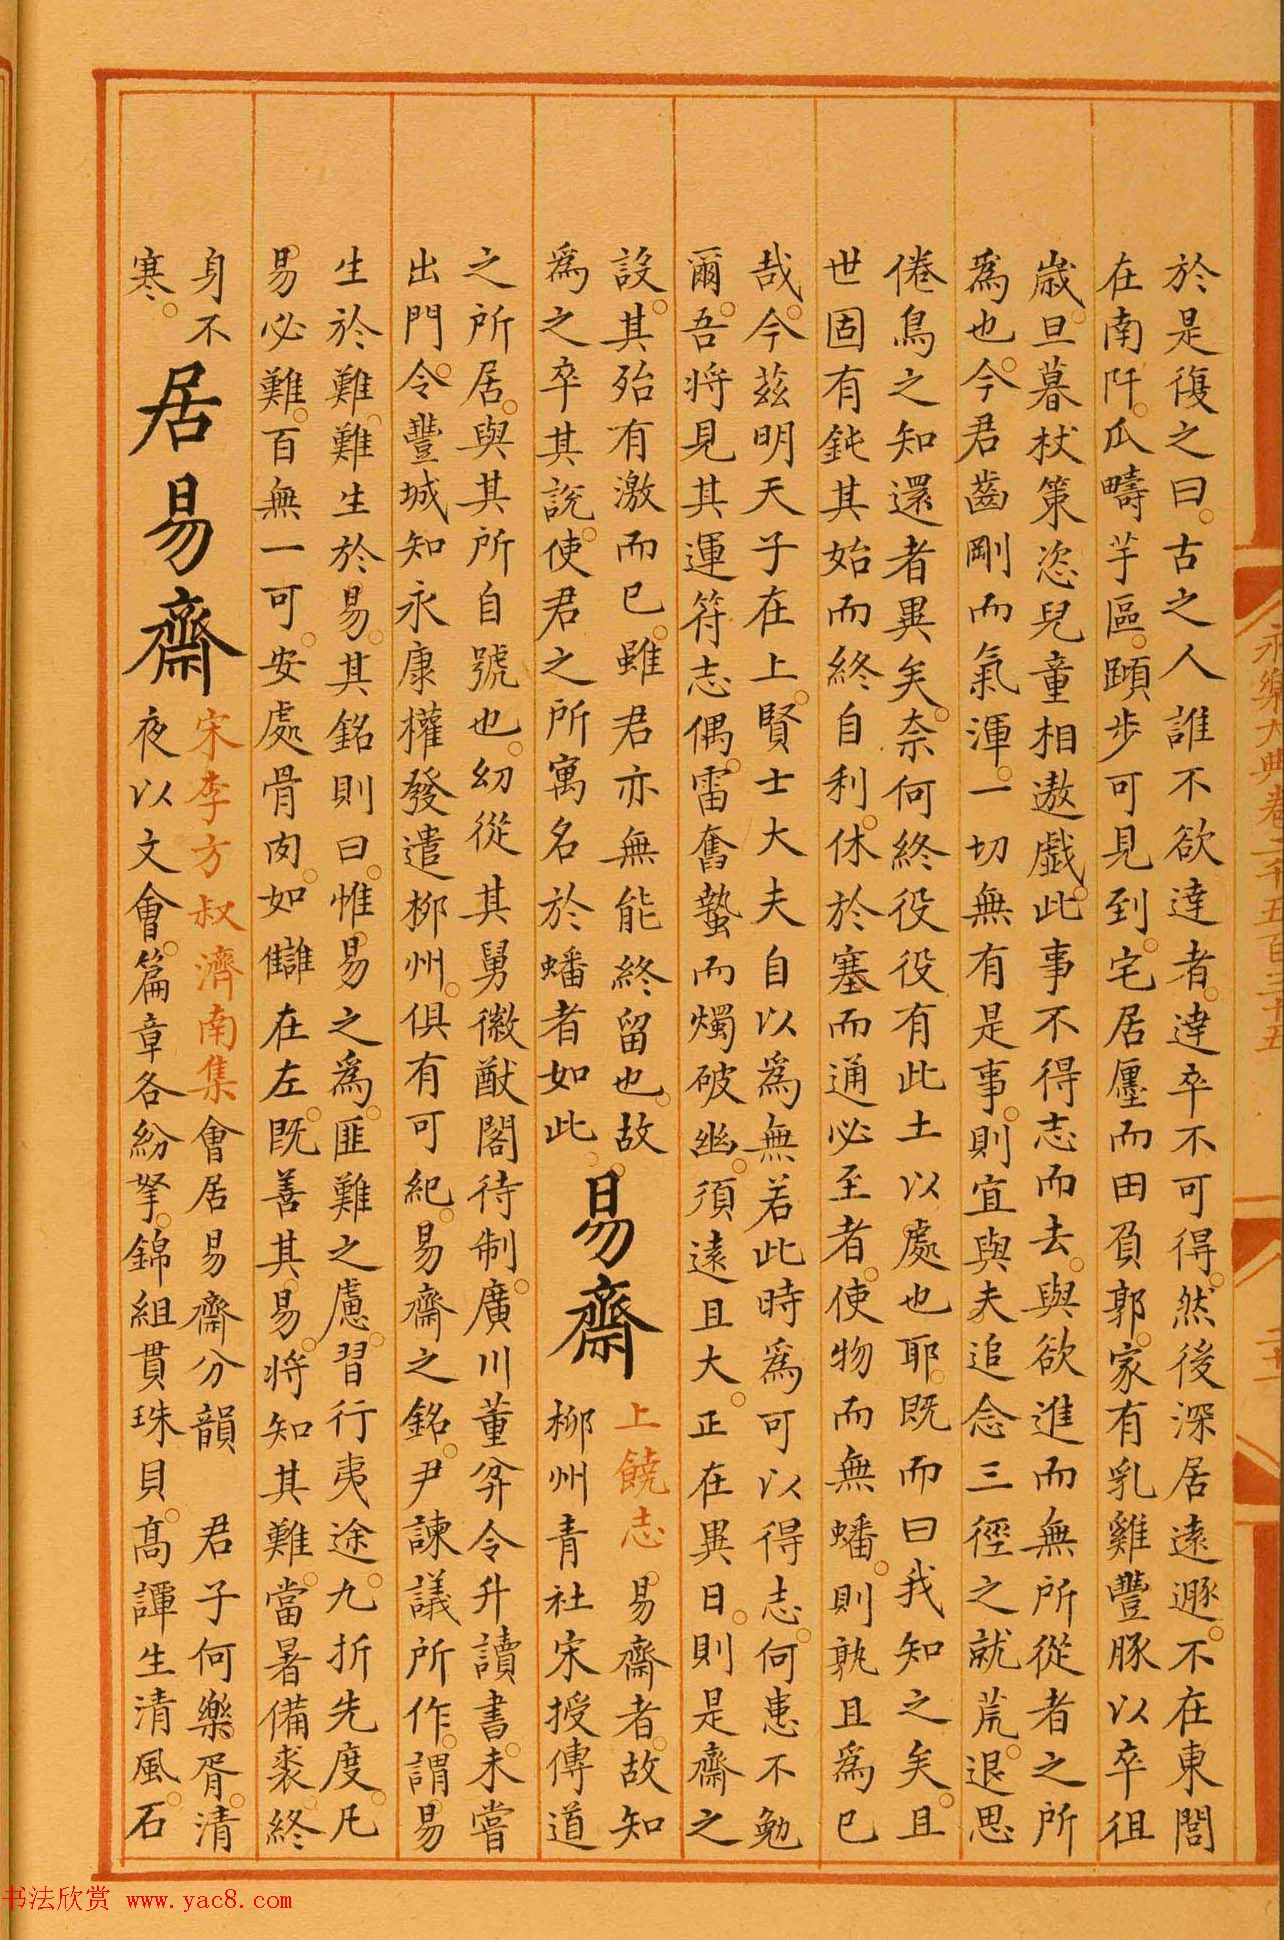 於是復之曰古之人誰不欲達者達卒不可得然後深居遠遯不在東閣
在南阡瓜疇芋區頤步可見到宅居廛而田負郭家有乳雞豐豚以卒徂
歲旦暮杖策恣兒童相遨戲此事不得志而去與欲進而無所從者之所
為也今君齒剛而氣渾一切無有是事則宜與夫追念三徑之就荒退思
倦鳥之知還者異矣奈何終役役有此土以處也耶既而曰我知之矣且
世固有鈍其始而終自利休於塞而通必至者使物而無蟠則孰且為已
哉今茲明天子在上賢士大夫自以為無若此時為可以得志何患不勉
爾吾將見其運符志偶雷奮蟄而燭破幽須遠且大正在異日則是齋之
設其殆有激而已雖君亦無能終留也故
為之卒其說使君之所寓名於蟠者如此
易齋
上饒志
易齋者故知
柳州青社宋授傳道
之所居與其所自號也幼從其舅徽猷閣待制廣川董弅令升讀書未嘗
出門令豐城知永康權發遣柳州俱有可紀易齋之銘尹諫議所作謂易
生於難難生於易其銘則曰惟易之為匪難之慮習行夷途九折先度凡
易必難百無一可安處骨肉如讎在左既善其易將知其難當暑備裘終
身不
寒
居易齋
宋李方叔濟南集
會居易齋分韻 君子何樂胥清
夜以文會篇章各紛拏錦組貫珠貝高譚生清風石
永樂大典卷二千五百三十五
書法欣賞 www.yac8.com